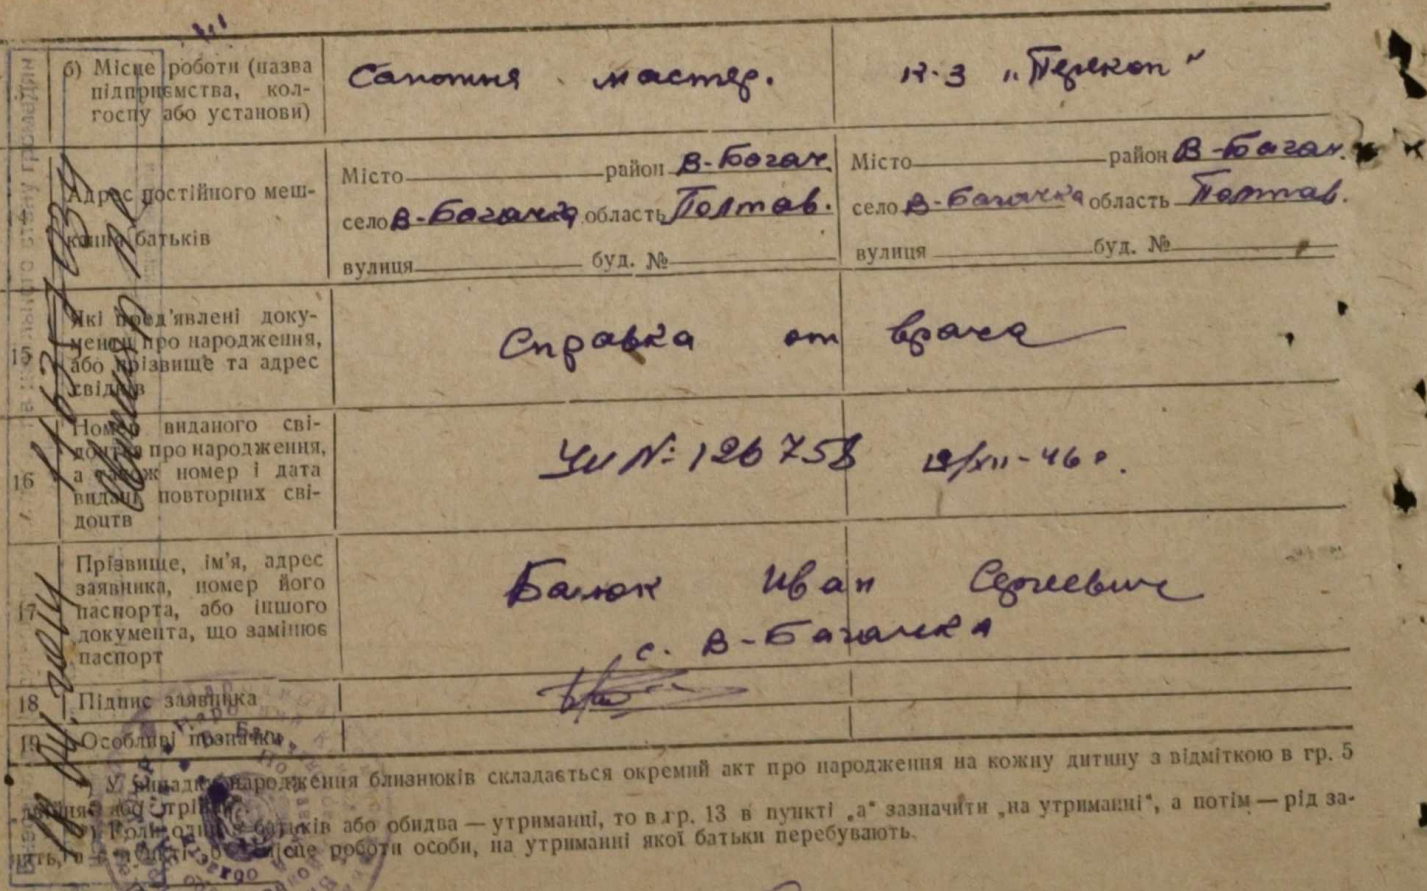 б) Місце роботи (назва
підприємства, кол-
госпу або установи)
Сапожня мастер.
к-з „Перекоп“
Адрес постійного меш-
кання батьків
Місто район В-Багач.
село В-Багачка область Полтав.
вулиця буд. №
Місто район В-Багач.
село В-Багачка область Полтав.
вулиця буд. №
15
Які пред'явлені доку-
менти про народження,
або прізвище та адрес
свідків
Справка от врача
16
Номер виданого сві-
доцтва про народження,
а також номер і дата
видачі повторних сві-
доцтв
№ 126758 12/XII-46 г.
17
Прізвище, ім'я, адрес
заявника, номер його
паспорта, або іншого
документа, що замінює
паспорт
Балюк Иван Сергеевич
с. В-Багачка
18
Підпис заявника
19
Особливі позначки
У випадку народження близнюків складається окремий акт про народження на кожну дитину з відміткою в гр. 5
„двійня“ або „трійня“.
Коли один з батьків або обидва — утриманці, то в гр. 13 в пункті „а“ зазначити „на утриманні“, а потім — рід за-
нять, а в пункті „б“ місце роботи особи, на утриманні якої батьки перебувають.